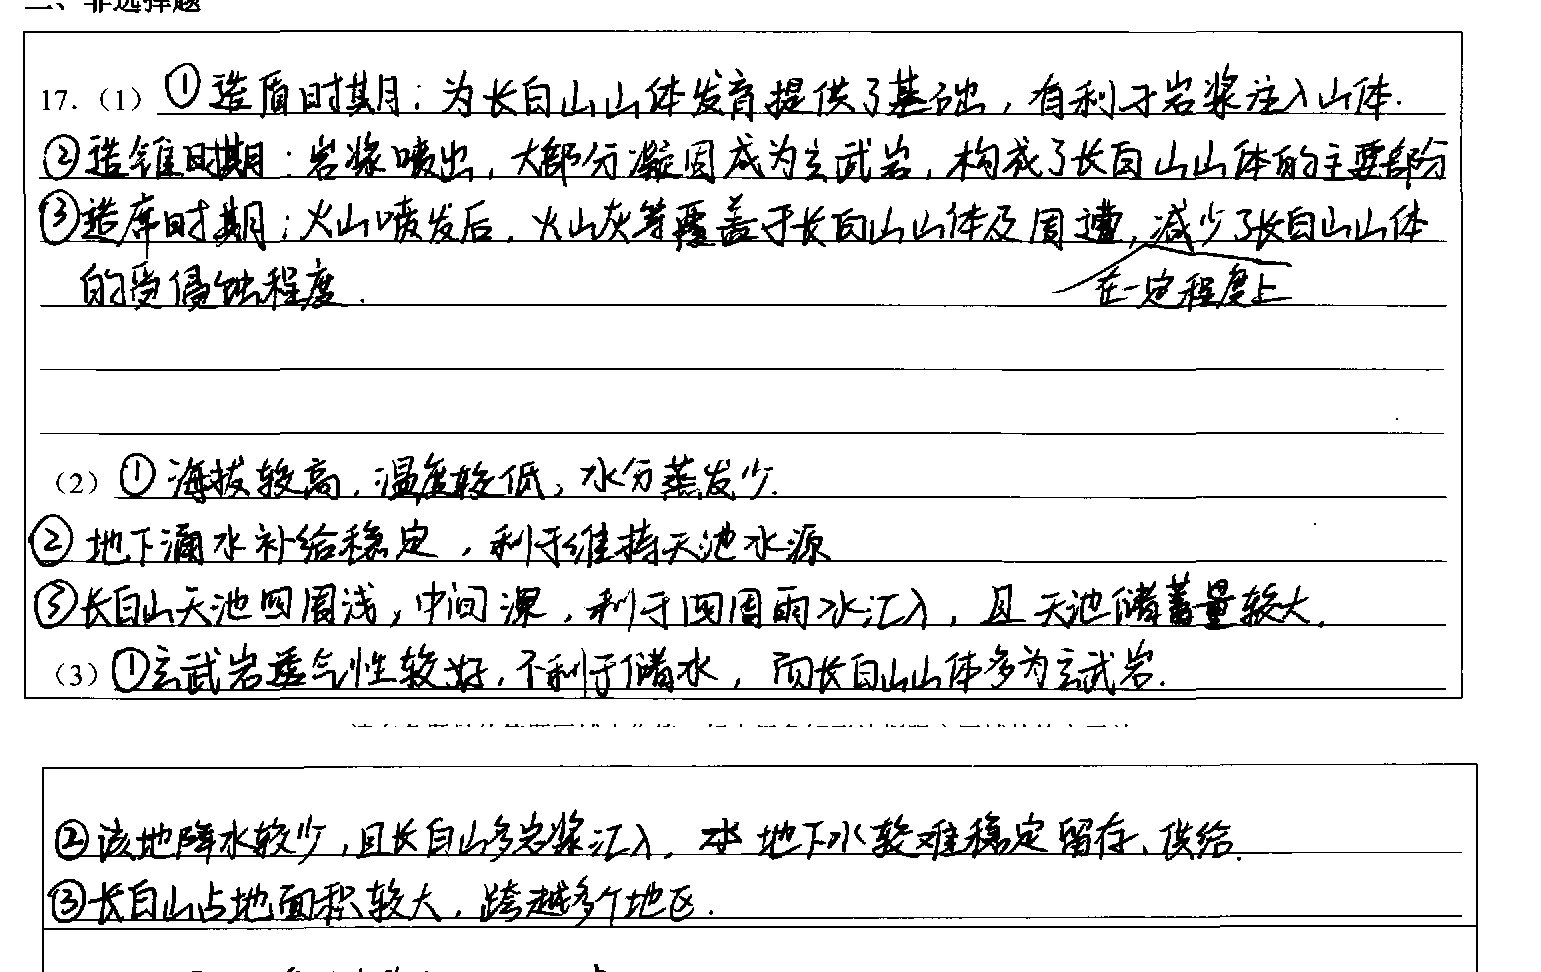 二、非选择题
17.（1）①造盾时期：为长白山山体发育提供了基础，有利于岩浆注入山体.
②造锥时期：岩浆喷出，大部分凝固成为玄武岩，构成了长白山山体的主要部分
③造席时期：火山喷发后，火山灰等覆盖于长白山山体及周遭，减少了长白山山体
在一定程度上
的受侵蚀程度.
（2）①海拔较高，温度较低，水分蒸发少.
②地下涌水补给稳定，利于维持天池水源
③长白山天池四周浅，中间深，利于四周雨水汇入，且天池储蓄量较大.
（3）①玄武岩透气性较好，不利于储水，而长白山山体多为玄武岩.
②该地降水较少，且长白山多岩浆汇入，地下水较难稳定留存、供给.
③长白山占地面积较大，跨越多个地区.